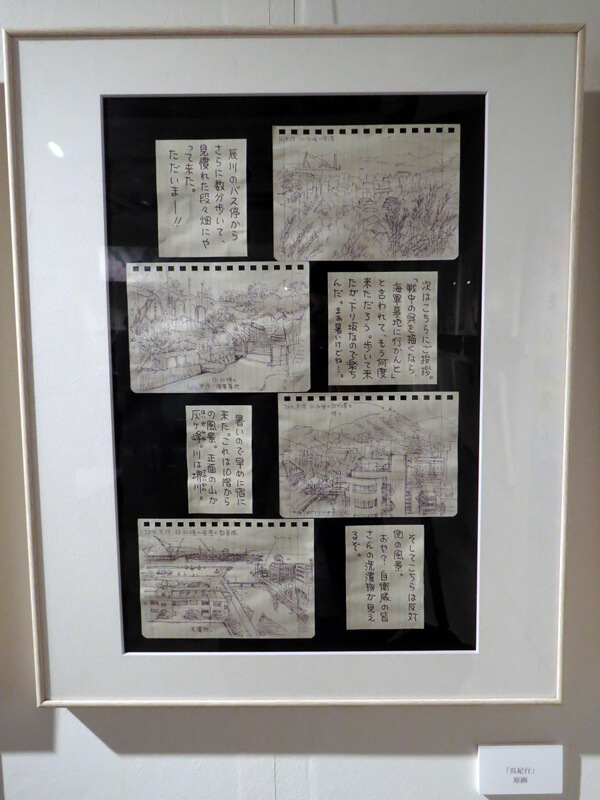 辰川のバス停から
さらに数分歩いて、
見慣れた段々畑にや
って来た。
ただいまー!!
次はこちらにご挨拶。
「戦中の呉を描くなら、
海軍墓地に行かんと」
と言われて、もう何度
来ただろう。歩いて来
たが、下り坂なので楽ち
んだ。まあ暑いけどね…。
暑いので早めに宿に
来た。これは10階から
の風景。正面の山が
灰ヶ峰。川は堺川。
そしてこちらは反対
側の風景。
おや?自衛艦の皆
さんの洗濯物が見え
るぞ。
洗濯物
「呉紀行」
原画